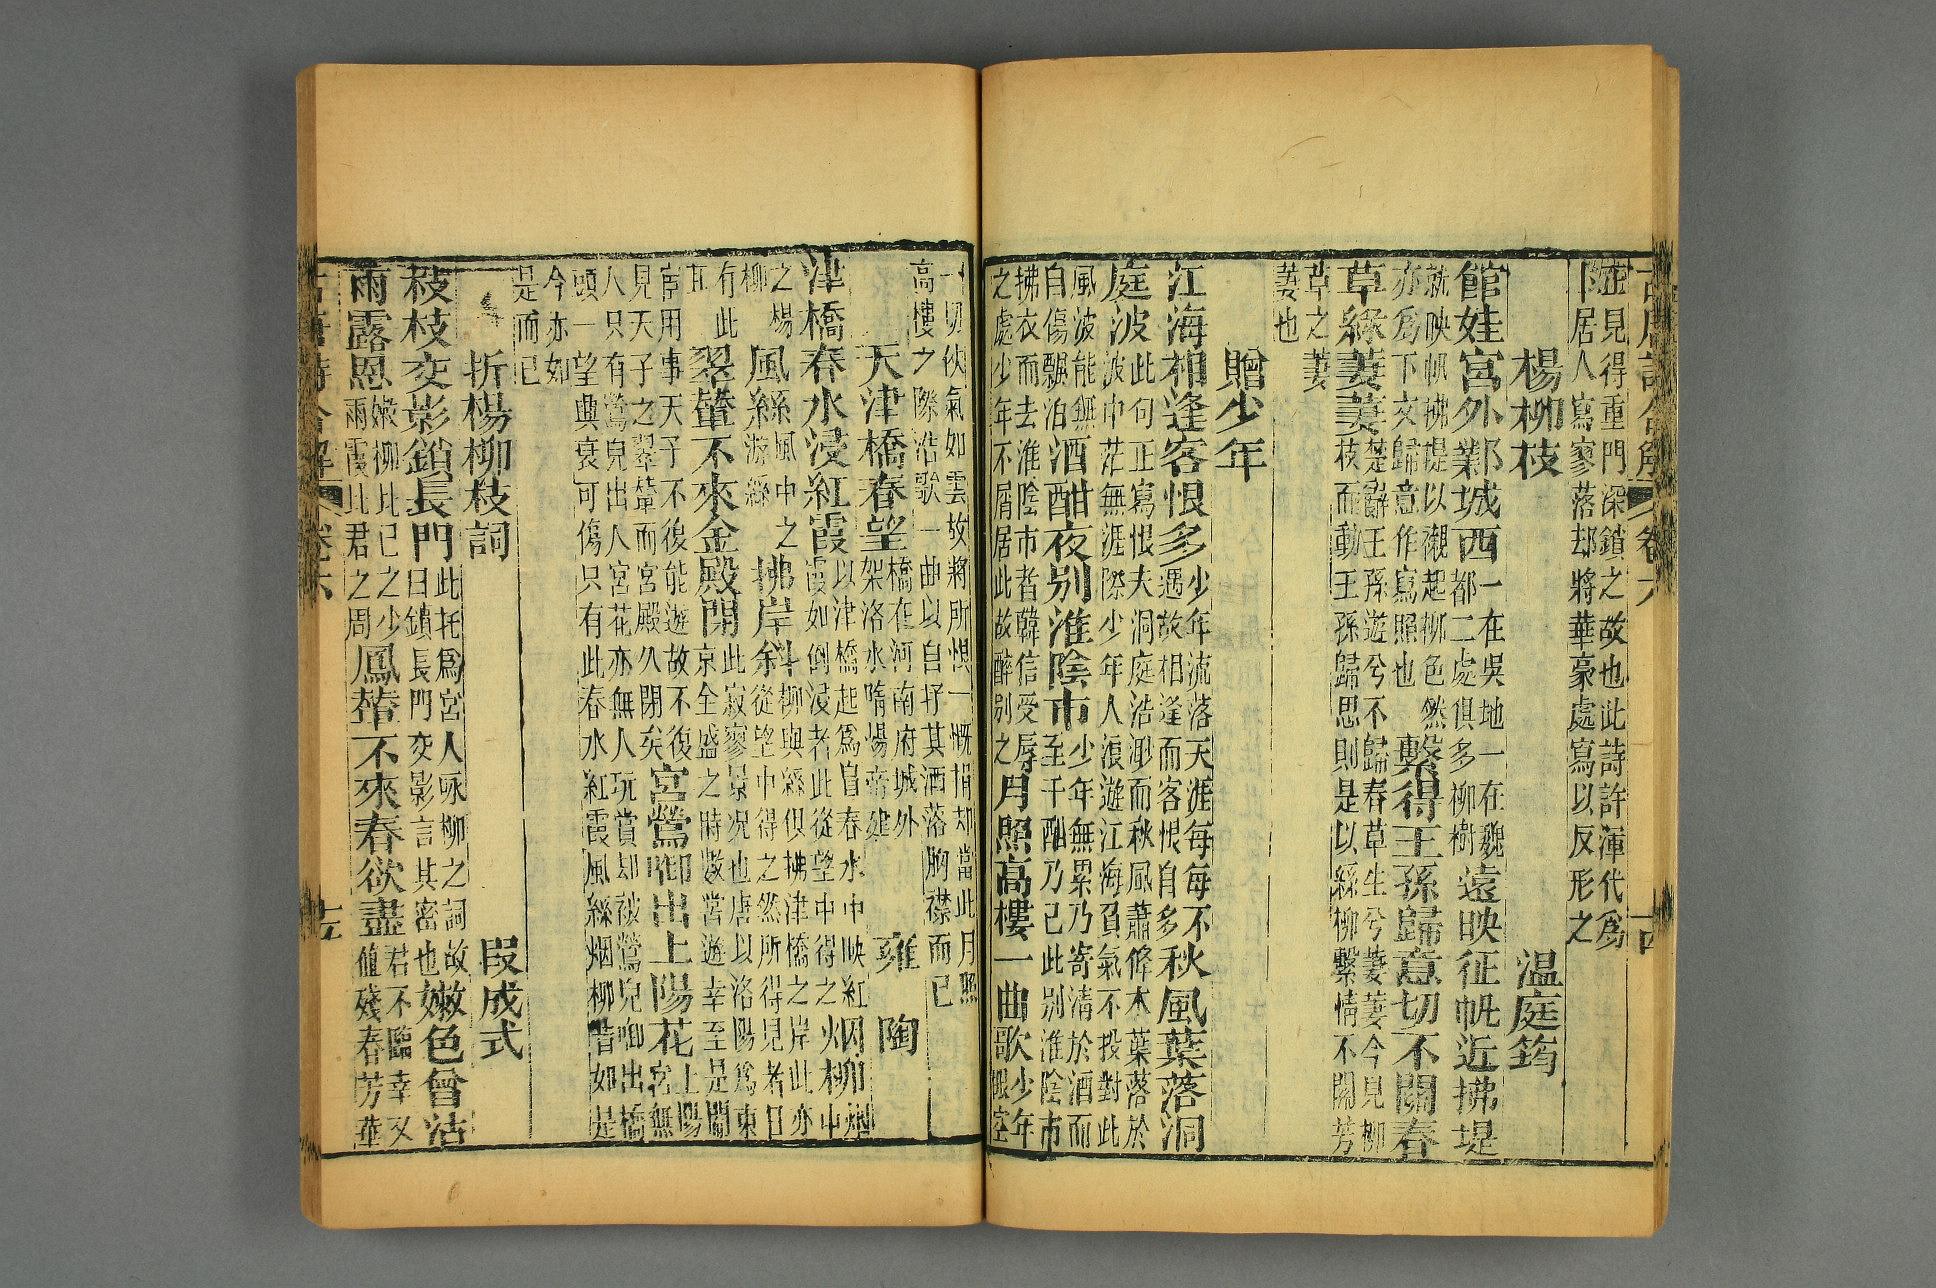 古唐詩合解 卷六 十四
庄見得重門深鎖之故也此詩許渾代爲
卜居人寫寥落却將華豪處寫以反形之
楊柳枝 温庭筠
館娃宮外鄴城西 一在吳地一在魏都二處俱多柳樹 遠映征帆近拂堤
就映帆拂堤以襯起柳色然亦爲下文歸意作寫照也 繫得王孫歸意切不關春
草綠萋萋 楚辭王孫遊兮不歸春草生兮萋萋今見柳枝而動王孫歸思則是以絲柳繫情不關芳
草之萋萋也
贈少年
江海相逢客恨多 少年流落天涯每每不遇故相逢而客恨自多 秋風葉落洞
庭波 此句正寫恨夫洞庭浩渺而秋風蕭條木葉落於波中茫無涯際少年人浪遊江海負氣不投對此
風波能無自傷飄泊 酒酣夜別淮陰市 少年無累乃寄情於酒而至千酣乃已此別淮陰市
拂衣而去淮陰市者韓信受辱之處少年不屑居此故醉別之 月照高樓一曲歌 少年眼空
一切俠氣如雲故將所恨一慨捐却當此月照
高樓之際浩歌一曲以自抒其洒落胸襟而已
天津橋春望 橋在河南府城外架洛水隋煬帝建 雍陶
津橋春水浸紅霞 以津橋起爲宮春水中映紅霞如倒浸者此從望中得之 烟柳 烟中
之楊柳 風絲 游絲風中之絲 拂岸斜 柳與絲俱拂津橋之岸此亦從望中得之然所得見者日
有此耳 翠輦不來金殿閉 此寂寥景况也唐以洛陽爲東京全盛之時數嘗遊幸至是閹
宦用事天子不復能遊故不復見天子之翠輦而宮殿久閉矣 宮鶯啣出上陽花 上陽宮無
人只有鶯兒出入宮花亦無人玩賞却被鶯兒啣出橋
頭一望興衰可傷只有此春水紅霞風絲烟柳昔如是
今亦如是而已
折楊柳枝詞 段成式
枝枝交影鎖長門 此托爲宮人咏柳之詞故曰鎖長門交影言其密也 嫩色曾沾
雨露恩 嫩柳比已之少雨露比君之周 鳳輦不來春欲盡 君不臨幸又值殘春芳華
古唐詩合解 卷六